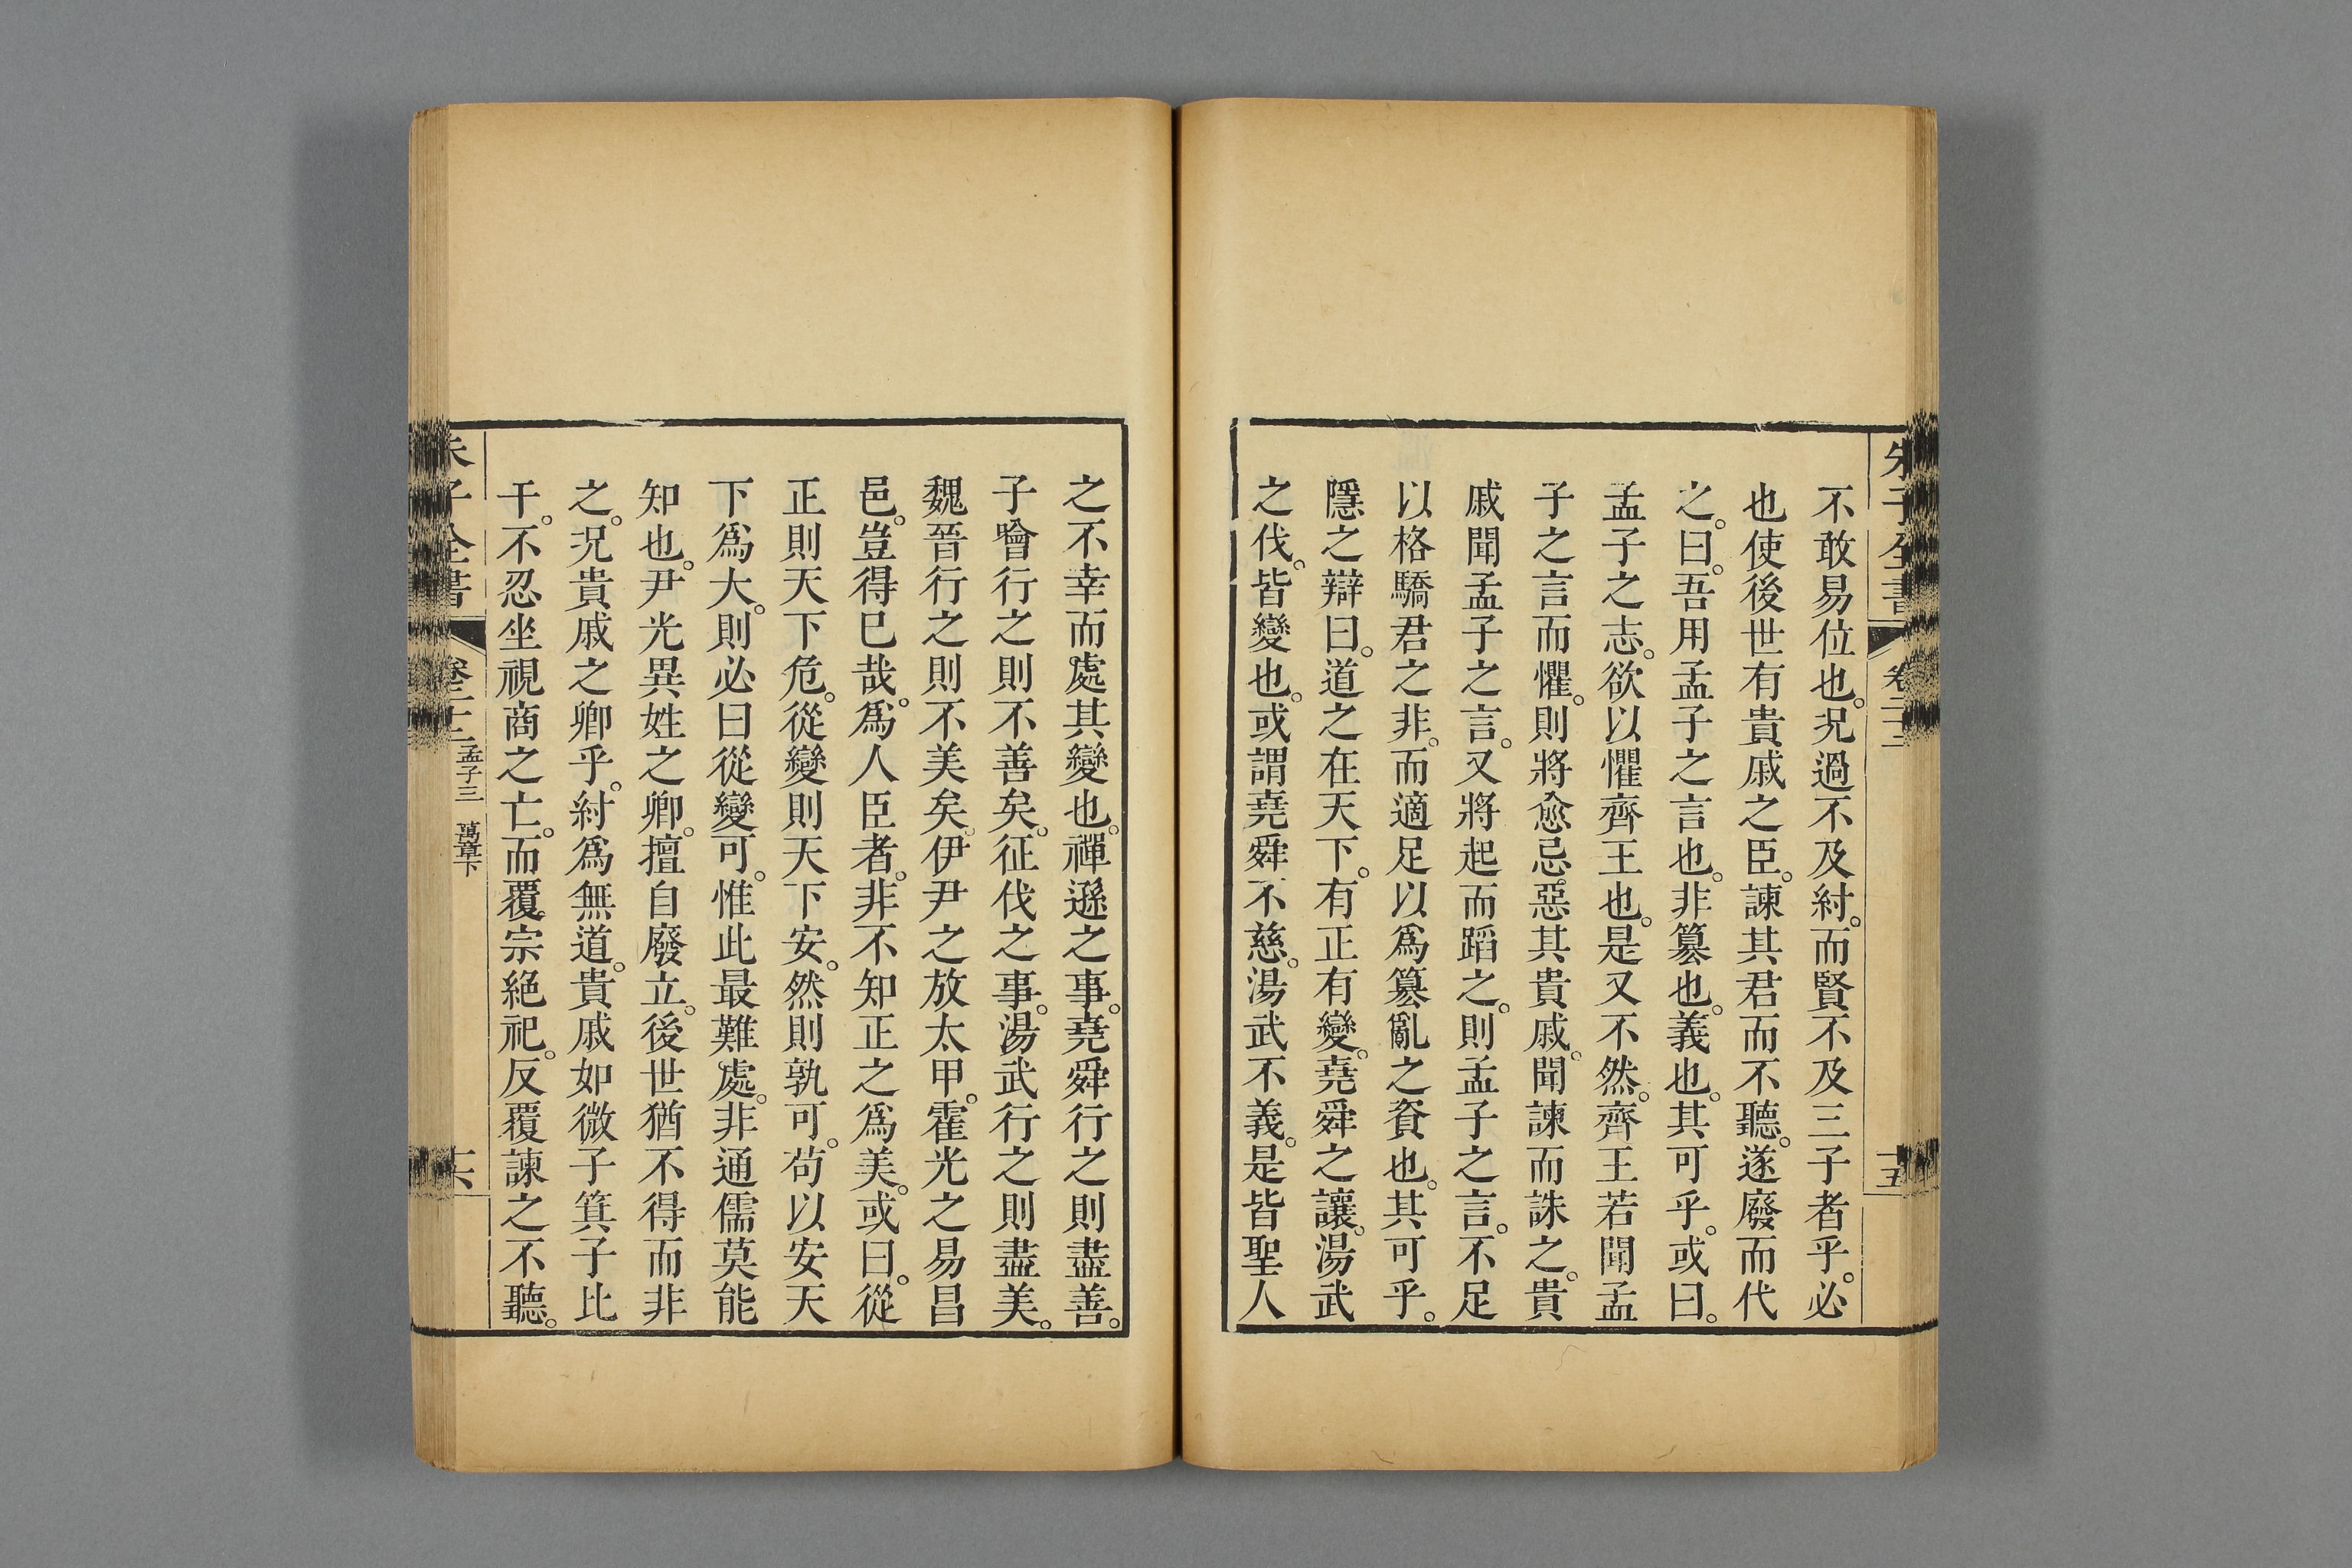 朱子全書 卷二十二 十五
不敢易位也。況過不及紂。而賢不及三子者乎。必
也使後世有貴戚之臣。諫其君而不聽。遂廢而代
之。曰。吾用孟子之言也。非簒也。義也。其可乎。或曰。
孟子之志。欲以懼齊王也。是又不然。齊王若聞孟
子之言而懼。則將愈忌惡其貴戚。聞諫而誅之。貴
戚聞孟子之言。又將起而蹈之。則孟子之言。不足
以格驕君之非。而適足以爲簒亂之資也。其可乎。
隱之辯曰。道之在天下。有正有變。堯舜之讓。湯武
之伐。皆變也。或謂堯舜不慈。湯武不義。是皆聖人
之不幸而處其變也。禪遜之事。堯舜行之則盡善。
子噲行之則不善矣。征伐之事。湯武行之則盡美。
魏晉行之則不美矣。伊尹之放太甲。霍光之易昌
邑。豈得已哉。爲人臣者。非不知正之爲美。或曰。從
正則天下危。從變則天下安。然則孰可。苟以安天
下爲大。則必曰從變可。惟此最難處。非通儒莫能
知也。尹光異姓之卿。擅自廢立。後世猶不得而非
之。況貴戚之卿乎。紂爲無道。貴戚如微子箕子比
干。不忍坐視商之亡。而覆宗絕祀。反覆諫之不聽。
朱子全書 卷二十二 孟子三 萬章下 十六